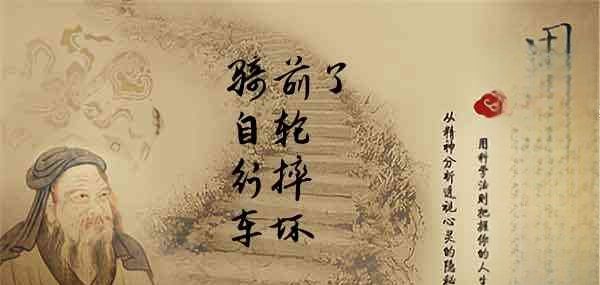 骑自行车
前轮摔坏
了
用科学法则把握你的人生
从精神分析透视心灵的隐秘